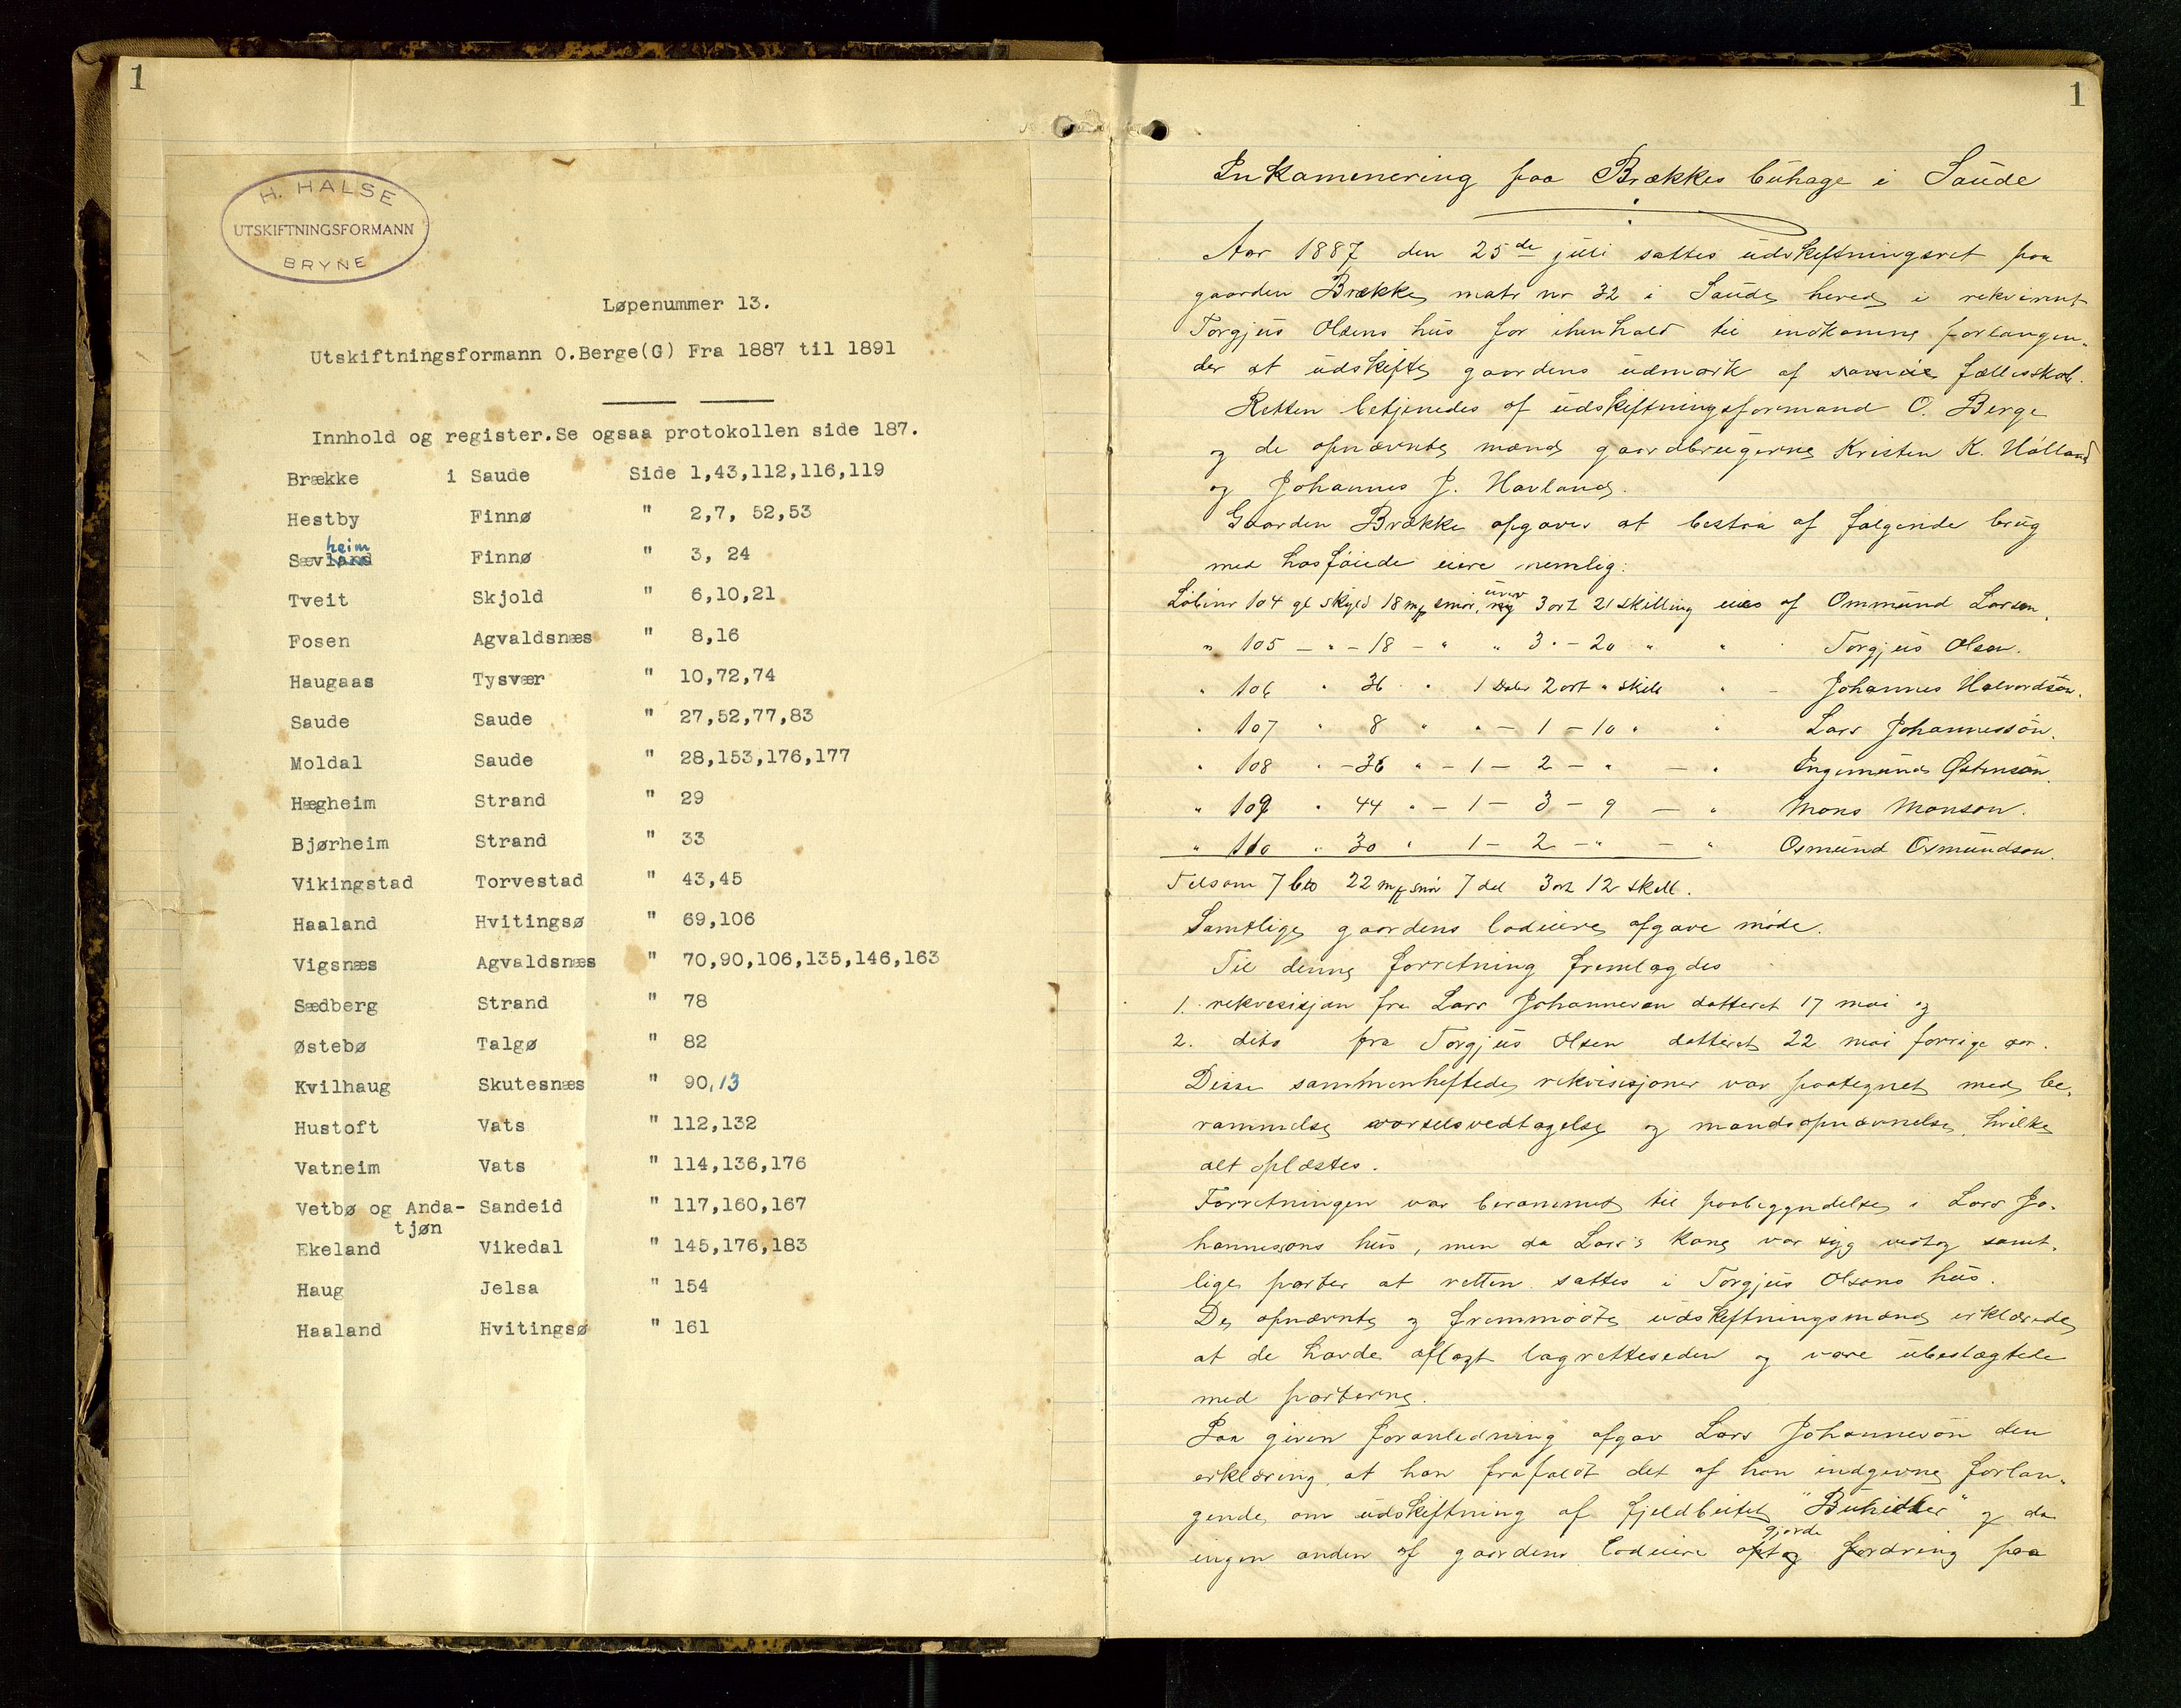 1
H. HALSE
UTSKIFTNINGSFORMANN
BRYNE
Løpenummer 13.
Utskiftningsformann O.Berge(G) Fra 1887 til 1891
Innhold og register.Se ogsaa protokollen side 187.
Brække i Saude Side 1,43,112,116,119
Hestby Finnø " 2,7, 52,53
heim
Sævland Finnø " 3, 24
Tveit Skjold " 6,10,21
Fosen Agvaldsnæs " 8,16
Haugaas Tysvær " 10,72,74
Saude Saude " 27,52,77,83
Moldal Saude " 28,153,176,177
Hægheim Strand " 29
Bjørheim Strand " 33
Vikingstad Torvestad " 43,45
Haaland Hvitingsø " 69,106
Vigsnæs Agvaldsnæs " 70,90,106,135,146,163
Sædberg Strand " 78
Østebø Talgø " 82
Kvilhaug Skutesnæs " 90,13
Hustoft Vats " 112,132
Vatneim Vats " 114,136,176
Vetbø og Anda- Sandeid " 117,160,167
tjøn
Ekeland Vikedal " 145,176,183
Haug Jelsa " 154
Haaland Hvitingsø " 161
1
Inkaminering paa Brækkes buhage i Saude
Aar 1887 den 25de juli sattes udskiftningsret paa
gaarden Brække matr nr 32 i Saude hered i rekvirent
Torgjus Olsens hus for ihenhold til indkomne forlangen-
der at udskifte gaardens udmark af sameie fællesskab.
Retten betjenedes af udskiftningsformand O. Berge
og de opnævnte mænd gaardbrugerne Kristen K. Hålland
og Johannes J. Havland.
Gaarden Brække opgaves at bestaa af følgende brug
med hosføiede eiere nemlig:
Löbenr 104 gl skyld 18 mp smör, 3 ort 21 skilling eies af Ommund Larson.
" 105 — " — 18 — " " 3 - 20 " " Torgjus Olson.
" 106 " 36 " 1 Daler 2 ort " skill " — Johannes Halvordsön.
" 107 " 8 " " — 1 — 10 " " Lars Johannessön.
" 108 " — 36 " — 1 — 2 — " — " Engemund Østensön.
" 109 " 44 " — 1 — 3 — 9 — " Mons Monson.
" 110 " 30 " 1 — 2 — " — " Osmund Osmundson.
Tilsam 7 22 mp smör 7 dal 3 ort 12 skill.
Samtlige gaardens lodeiere afgave møde.
Til denne forretning fremlagdes
1. rekvisisjon fra Lars Johanneson datteret 17 mai og
2. dito fra Torgjus Olsen datteret 22 mai forrige aar.
Disse sammenheftede rekvisisjoner var paategnet med be-
rammelse varselsvedtagelse og mandsopnævnelse, hvilke
alt oplæstes.
Forretningen var berammet til paabegyndelse i Lars Jo-
hannesons hus, men da Lars's kone var syg vedtog samt-
lige parter at retten sattes i Torgjus Olsons hus.
De opnævnte og fremmødte udskiftningsmænd erklærede
at de havde aflagt lagretteseden og vare ubeslægtede
med parterne.
Paa given foranledning afgav Lars Johanneson den
erklæring, at han frafaldt det af han indgivne forlan-
gende om udskiftning af fjeldbeitet "Buhidler" og da
gjorde
ingen anden af gaardens lodeiere optog fordring paa